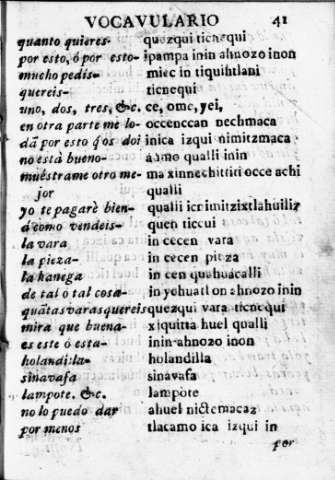 VOCAVULARIO 41
quanto quieres- quezqui ticnequi
por esto, ó por esto- ipampa inin ahnozo inon
mucho pedis- miec in tiquihtlani
quereis- ticnequi
uno, dos, tres, &c. ce, ome, yei,
en otra parte me lo- occenccan nechmaca
dã por esto q̃ os doi inica izqui nimitzmaca
no està bueno- ahmo qualli inin
muéstrame otro me- ma xinnechittiti occe achi
jor qualli
yo te pagarè bien- qualli icnimitzixtlahuiliz
à como vendeis- quen ticcui
la vara in cecen vara
la pieza- in cecen pieza
la hanega in cen quahuacalli
de tal ò tal cosa- in yehuatl on ahnozo inin
quãtas varas quereis quezqui vara ticnequi
mira que buena- xiquitta huel qualli
es este ó esta- inin ahnozo inon
holandilla- holandilla
sinavafa sinavafa
lampote. &c. lampote
no lo puedo dar ahuel nictemacaz
por menos tlacamo ica izqui in
por